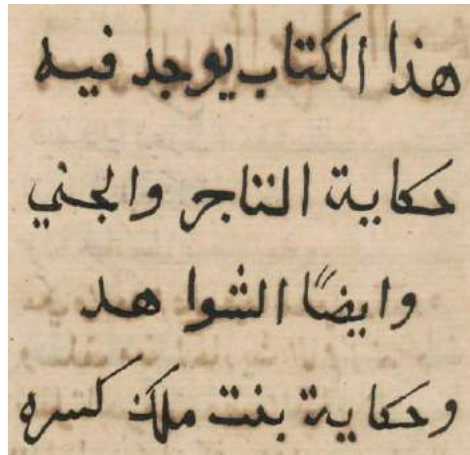 هذا الكتاب يوجد فيه
حكاية التاجر والجني
وايضًا الشوا هد
وحكاية بنت ملك كسره